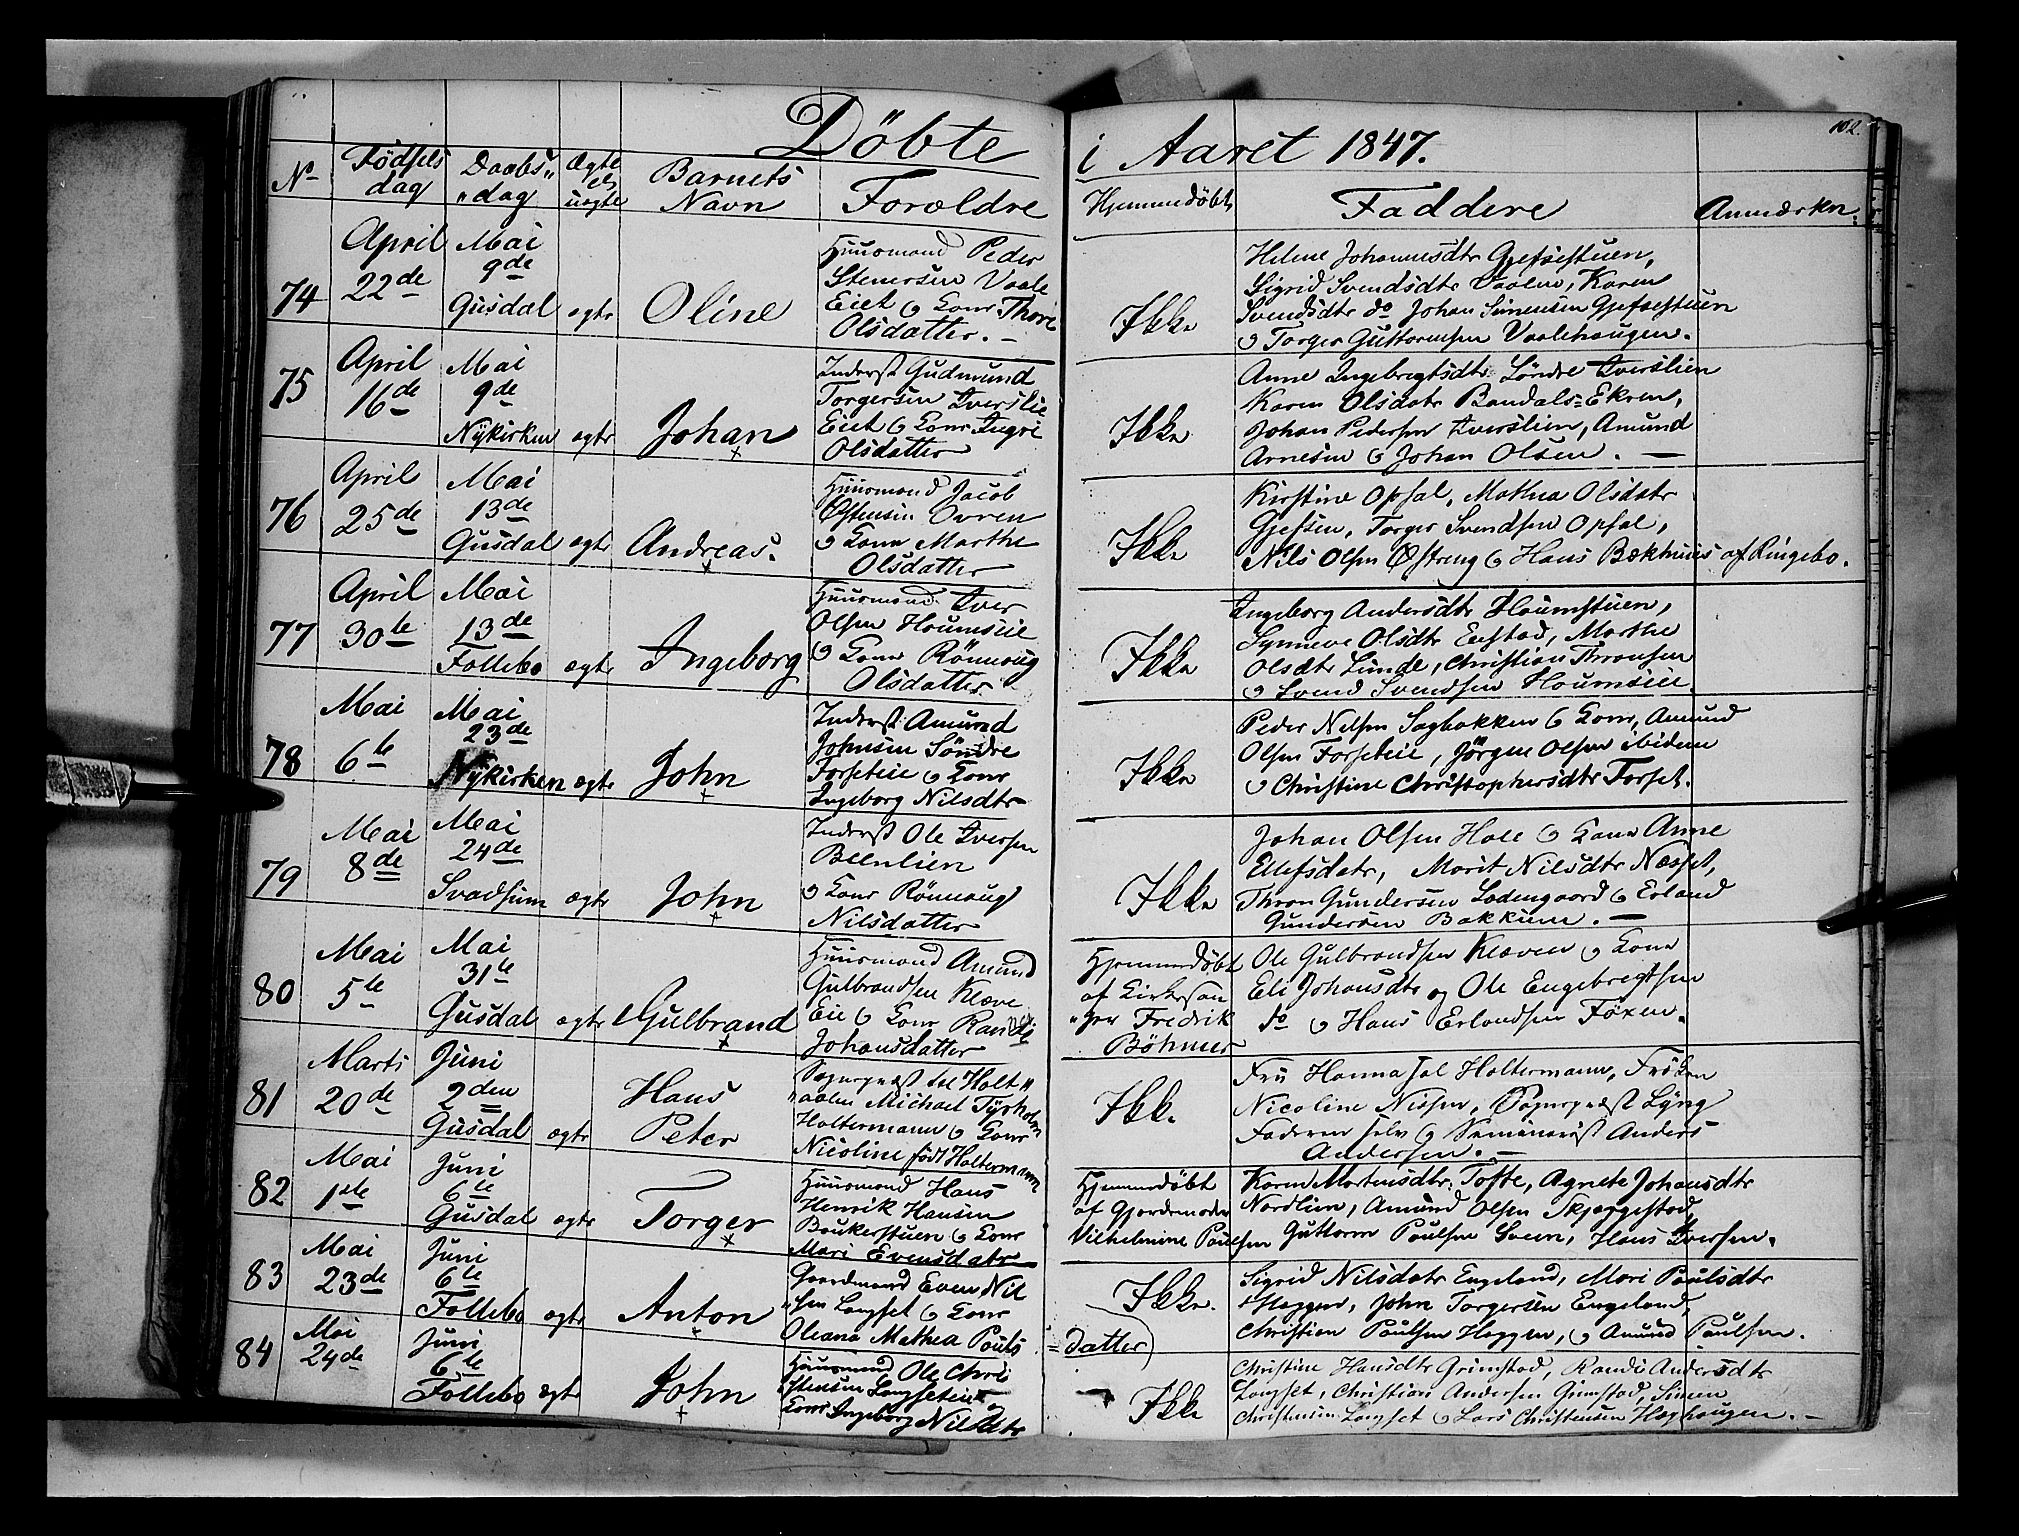 102.
Döbte i Aaret 1847.
No Födsels dag Daabs dag Ægte el uægte Barnets Navn Forældre Hjemmedöbt Faddere Anmærkn.
74 April 22de Mai 9de Gusdal ægte Oline
Huusmand Peder
Stenersen Vaale
Eiet og Kone Thore
Olsdatter. –
Ikke
Helene Johannesdtr Gjefsestuen,
Sigrid Svendsdtr Vaalen, Karen
Svendsdtr do Johan Simensen Gjefsestuen
og Torger Guttormsen Vaalehaugen.
75 April 16de Mai 9de Nykirken ægte Johan
Inderst Gudmund
Torgersen Iverslie
Eiet og Kone Ingri
Olsdatter
Ikke
Anne Ingebregtsdtr Söndre Iverslien
Karen Olsdatr Bandals=Ekren,
Johan Pedersen Iverslien, Amund
Arnesen og Johan Olsen. –
76 April 25de Mai 13de Gusdal ægte Andreas.
Huusmand Jacob
Østensen Ovren
og Kone Marthe
Olsdatter
Ikke
Kirstine Opsal, Mathea Olsdatr
Gjefsen, Torger Svendsen Opsal,
Nils Olsen Østreng og Hans Bækhuus af Ringebo.
77 April 30te Mai 13de Follebo ægte Ingeborg
Huusmand Iver
Olsen Houmseie
og Kone Rönnoug
Olsdatter
Ikke
Ingeborg Andersdtr Houmstuen,
Synneve Olsdtr Enstad, Marthe
Olsdtr Linde, Christian Thronsen
og Svend Svendsen Houmseie
78 Mai 6te Mai 23de Nykirken ægte John
Inderst Amund
Johnsen Söndre
Forseteie og Kone
Ingeborg Nilsdtr
Ikke
Peder Nilsen Sagbakken og Kone, Amund
Olsen Forseteie, Jörgen Olsen ibidem
og Christine Christophersdtr Forset.
79 Mai 8de Mai 24de Svadsum ægte John
Inderst Ole Iversen
Beenlien
og Kone Rönnoug
Nilsdatter
Ikke
Johan Olsen Hole og Kone Anne
Ellefsdatr, Marit Nilsdtr Næsset,
Thron Gundersen Lodengaard og Erland
Gundersen Bakkum. –
80 Mai 5te Mai 31te Gusdal ægte Gulbrand
Huusmand Amund
Gulbrandsen Kleve
Eie og Kone Randi
Johansdatter
Hjemmedöbt
af Kirkesan
ger Fredrik
Böhmer
Ole Gulbrandsen Kleven og Kone
Eli Johansdtr og Ole Engebregtsen
do og Hans Erlandsen Föxen.
81 Marts 20de Juni 2den Gusdal ægte Hans Peter
Sognepræst til Holt„
„aalen Michael Tyrholm
Holtermann og Kone
Nicoline född Holtermann
Ikke
Fru Hanna sal Holtermann, Fröken
Nicoline Nissen, Sognepræst Lyng
Faderen selv og Seminarist Anders
Andersen. –
82 Mai 1ste Juni 6te Gusdal ægte Torger
Huusmand Hans
Henrik Hansen
Baukerstuen og Kone
Mari Evensdatr
Hjemmedöbt
af Gjordemoder
Vilhelmine Paulsen
Karen Mortensdtr. Tofte, Agnete Johansdtr
Nordlien, Amund Olsen Skjeggestad,
Guttorm Paulsen Sveen, Hans Iversen.
83 Mai 23de Juni 6te Follebo ægte Anton
Gaardmand Even Nil
„sen Longset og Kone
Oleana Mathea Pouls
=datter
Ikke.
Sigrid Nilsdatr Engeland, Mari Paulsdtr
Haggen, John Torgersen Engeland,
Christian Paulsen Haggen, og Amund Paulsen.
84 Mai 24de Juni 6te Follebo ægte John
Huusmand Ole Chri
stensen Longseteie og
Kone Ingeborg Nilsdtr
Ikke
Christine Hansdtr Grimstad, Randi Andersdtr
Longset, Christian Andersen Grimstad, Simen
Christensen Longset og Lars Christensen Haghaugen. –